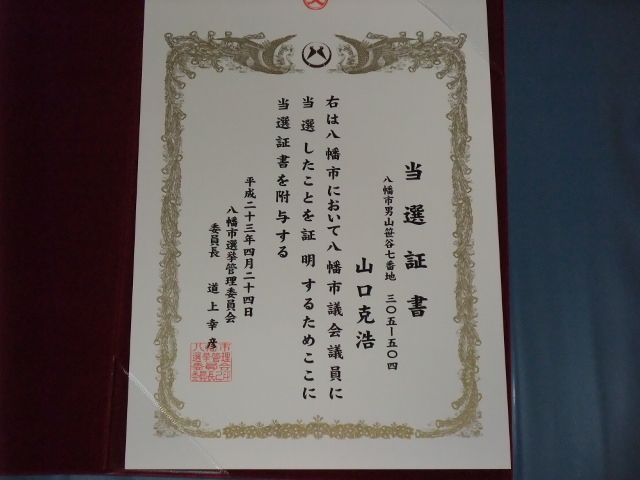 当選証書
八幡市男山笹谷七番地 三〇五ー五〇四
山口克浩
右は八幡市において八幡市議会議員に
当選したことを証明するためここに
当選証書を附与する
平成二十三年四月二十四日
八幡市選挙管理委員会
委員長 道上幸彦